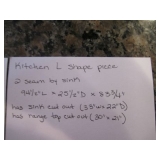 Kitchen L shape piece
2 seam by sink
94½"L x 25½"D x 85¾"
has sink cut out (33"W x 22"D)
has range top cut out (30" x 21")